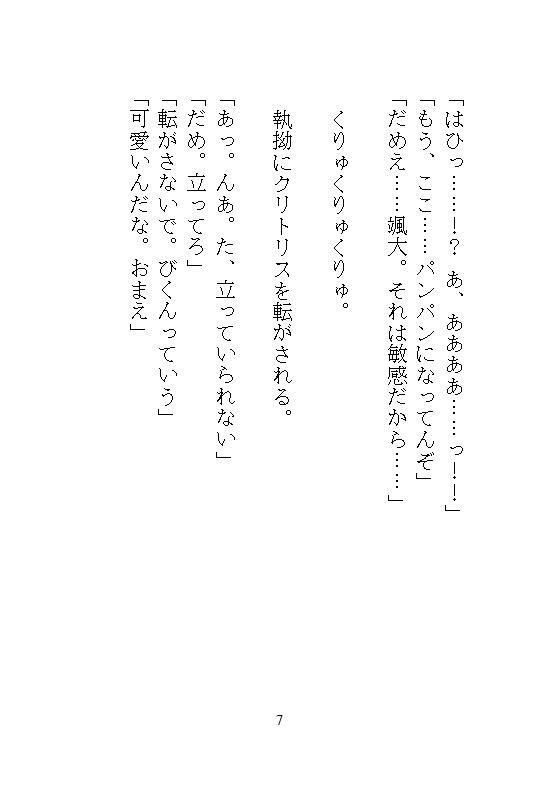 「はひっ……！？　あ、ああああ……っ――！」
「もう、ここ……パンパンになってんぞ」
「だめえ……颯大。それは敏感だから……」
くりゅくりゅくりゅ。
執拗にクリトリスを転がされる。
「あっ。んあ。た、立っていられない」
「だめ。立ってろ」
「転がさないで。びくんっていう」
「可愛いんだな。おまえ」
7